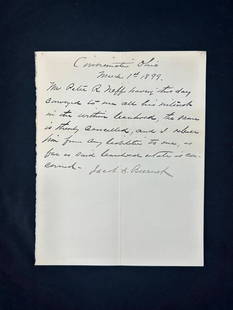 Cincinnati Ohio
March 1st 1899.
Mr Peter R. Neff having this day
conveyed to me all his interest
in the within leasehold, the same
is thereby cancelled, and I release
him from any liability to me, as
far as said leasehold estate is con-
cerned -
Jacob